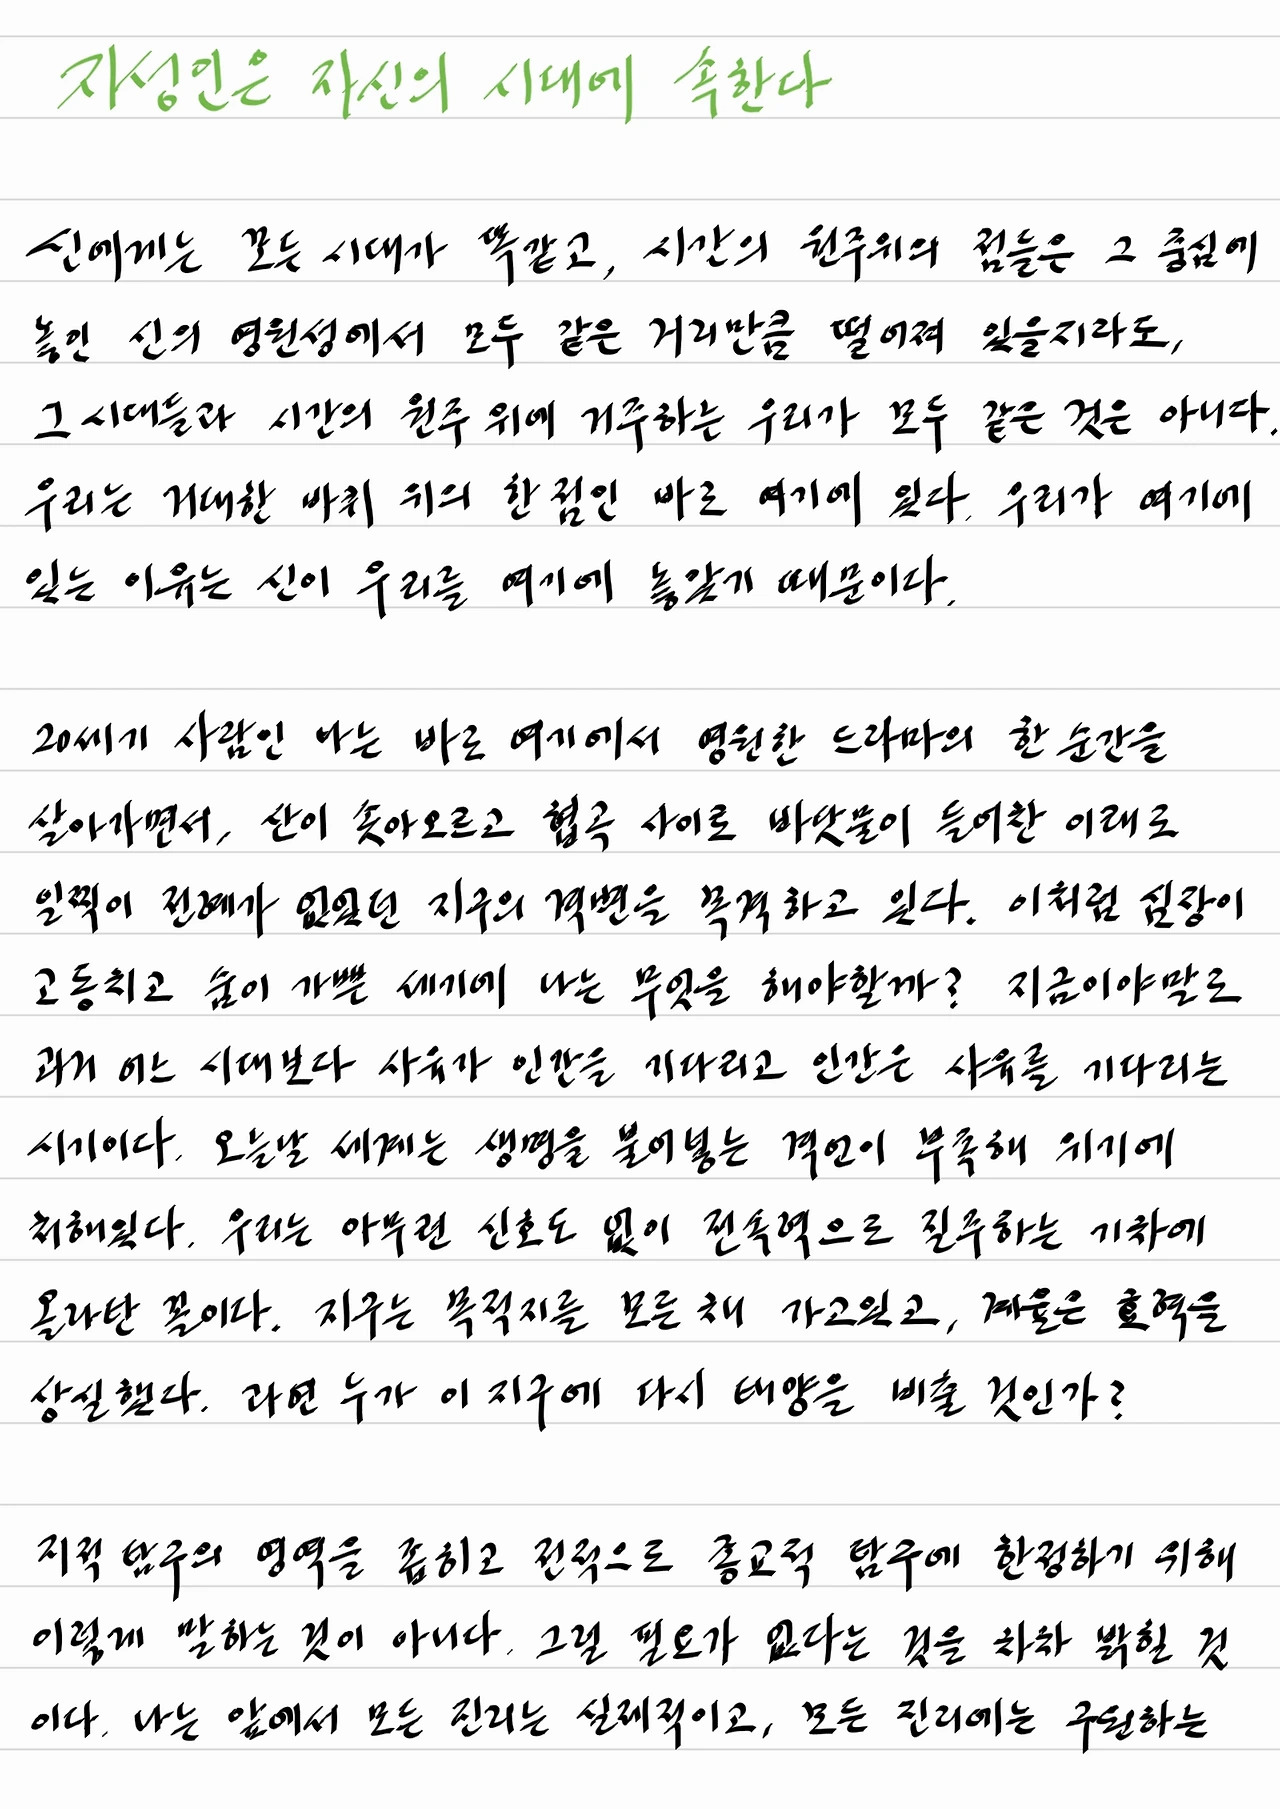 지성인은 자신의 시대에 속한다
신에게는 모든 시대가 똑같고, 시간의 원주위의 점들은 그 중심에
놓인 신의 영원성에서 모두 같은 거리만큼 떨어져 있을지라도,
그 시대들과 시간의 원주 위에 거주하는 우리가 모두 같은 것은 아니다.
우리는 거대한 바퀴 위의 한 점인 바로 여기에 있다. 우리가 여기에
있는 이유는 신이 우리를 여기에 놓았기 때문이다.
20세기 사람인 나는 바로 여기에서 영원한 드라마의 한 순간을
살아가면서, 산이 솟아오르고 협곡 사이로 바닷물이 들어찬 이래로
일찍이 전례가 없었던 지구의 격변을 목격하고 있다. 이처럼 심장이
고동치고 숨이 가쁜 세기에 나는 무엇을 해야할까? 지금이야말로
과거 어느 시대보다 사유가 인간을 기다리고 인간은 사유를 기다리는
시기이다. 오늘날 세계는 생명을 불어넣는 격언이 부족해 위기에
처해있다. 우리는 아무런 신호도 없이 전속력으로 질주하는 기차에
올라탄 꼴이다. 지구는 목적지를 모른 채 가고있고, 계율은 효력을
상실했다. 과연 누가 이 지구에 다시 태양을 비출 것인가?
지적 탐구의 영역을 좁히고 전적으로 종교적 탐구에 한정하기 위해
이렇게 말하는 것이 아니다. 그럴 필요가 없다는 것을 차차 밝힐 것
이다. 나는 앞에서 모든 진리는 실제적이고, 모든 진리에는 구원하는